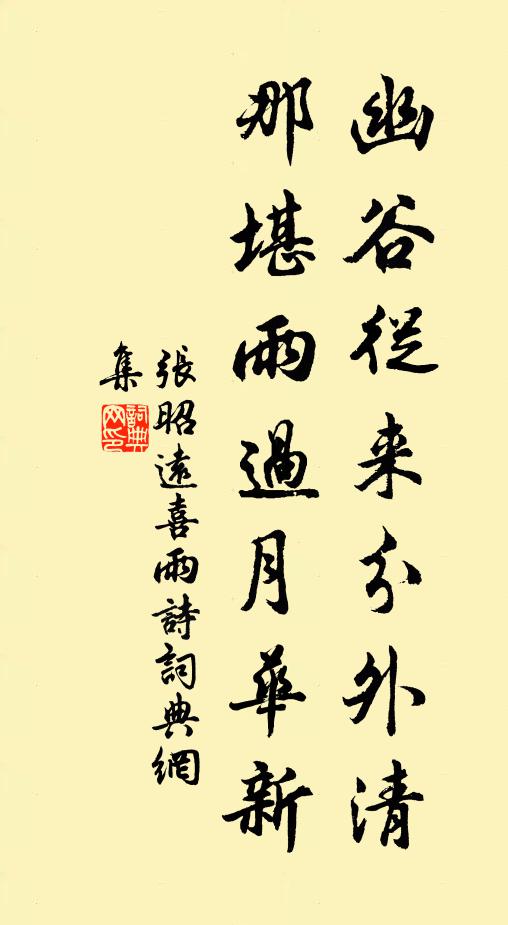 幽谷從来分外清
那堪雨過月華新
張昭遠喜雨詩詞典網
集
詞典
网印